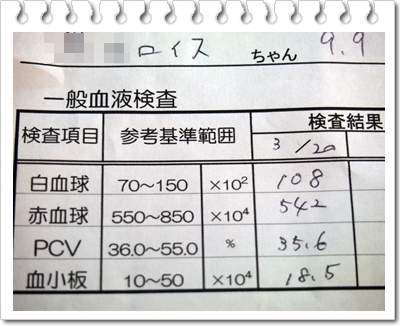 ロイス ちゃん 9.9
一般血液検査
検査項目 参考基準範囲 検査結果
3/20
白血球 70～150 ×10² 108
赤血球 550～850 ×10⁴ 542
PCV 36.0～55.0 % 35.6
血小板 10～50 ×10⁴ 18.5